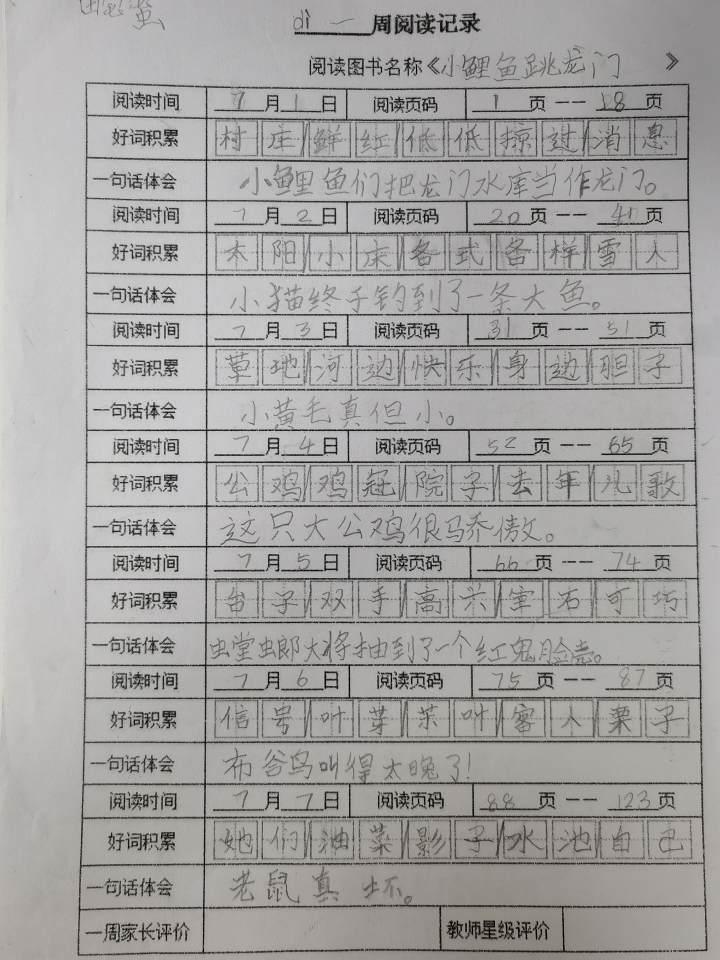 dì 一 周阅读记录
阅读图书名称《小鲤鱼跳龙门》
阅读时间 7月1日 阅读页码 1页－－18页
好词积累 村庄/鲜红/低低/掠过/消息
一句话体会 小鲤鱼们把龙门水库当作龙门。
阅读时间 7月2日 阅读页码 20页－－41页
好词积累 太阳/小床/各式各样/雪人
一句话体会 小猫终于钓到了一条大鱼。
阅读时间 7月3日 阅读页码 31页－－51页
好词积累 草地/河边/快乐/身边/胆子
一句话体会 小黄毛真但小。
阅读时间 7月4日 阅读页码 52页－－65页
好词积累 公鸡/鸡冠/院子/去年/儿歌
一句话体会 这只大公鸡很骄傲。
阅读时间 7月5日 阅读页码 66页－－74页
好词积累 台子/双手/高兴/室石/可巧
一句话体会 螳螂大将抽到了一个红鬼脸壳。
阅读时间 7月6日 阅读页码 75页－－87页
好词积累 信号/叶芽/茶叶/客人/栗子
一句话体会 布谷鸟叫得太晚了!
阅读时间 7月7日 阅读页码 88页－－123页
好词积累 她们/油菜/影子/水池/自己
一句话体会 老鼠真坏。
一周家长评价 教师星级评价